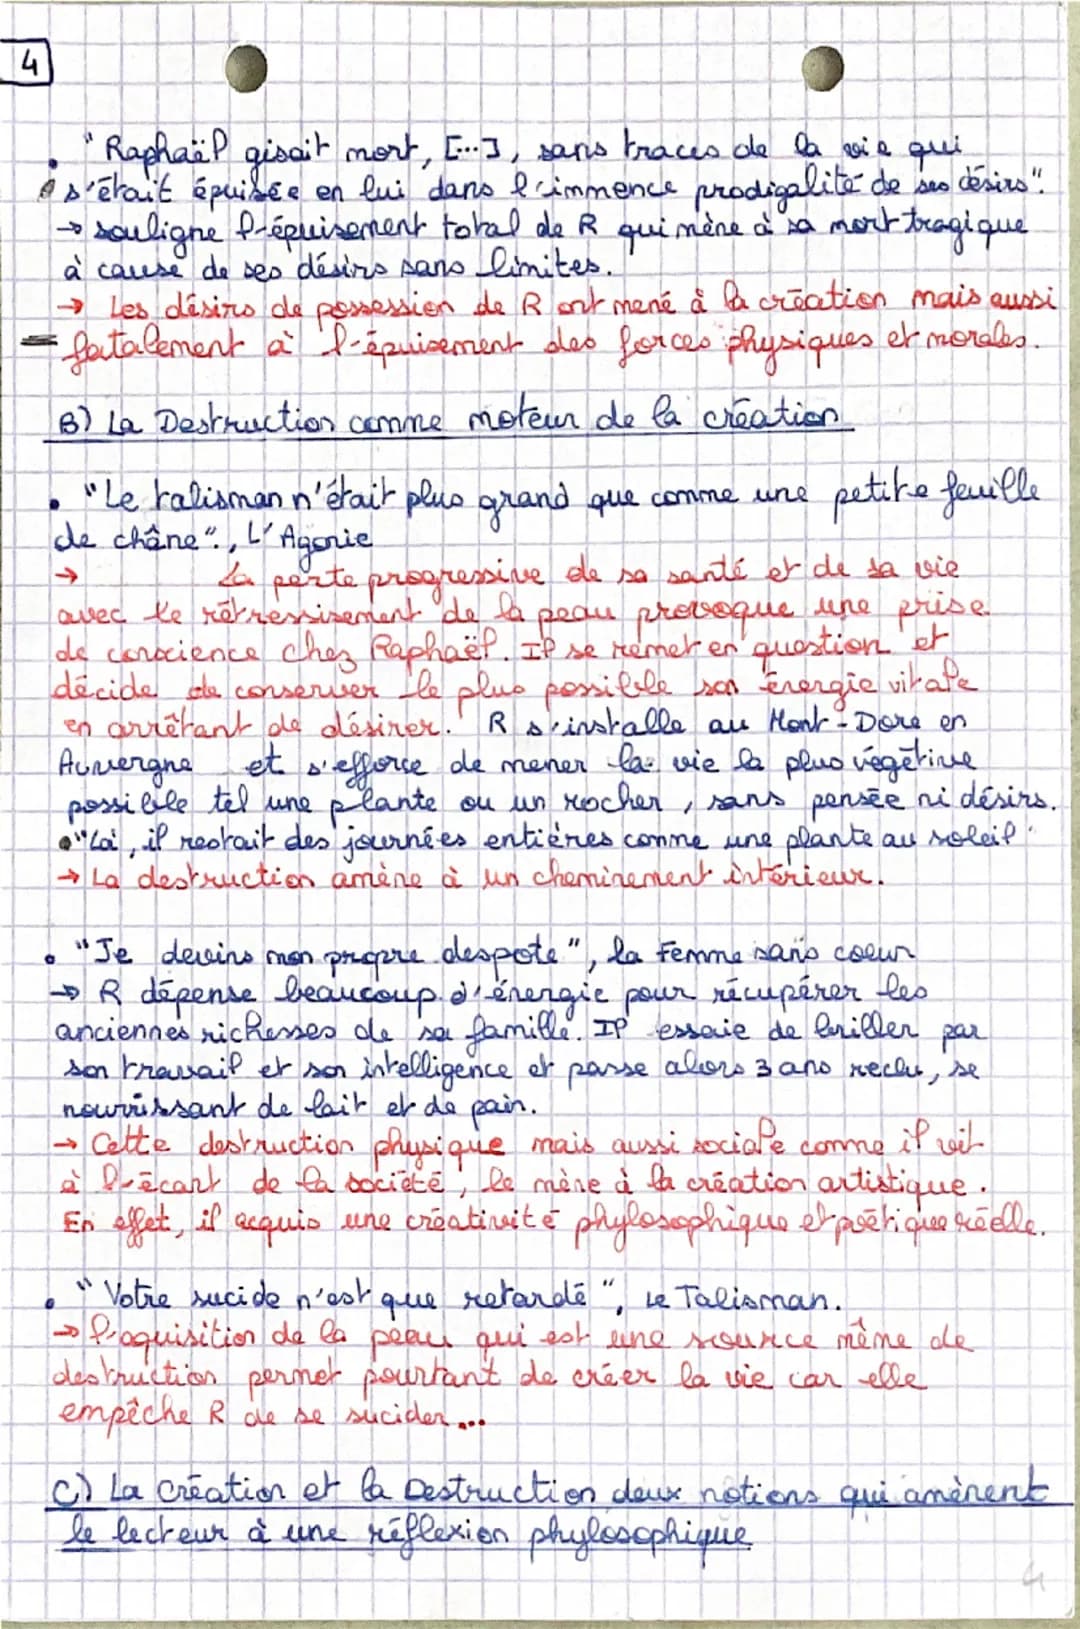 4
• "Raphaël gisait mort, [...], sans traces de la vie qui
s'était épuisée en lui dans l'immence prodigalité de ses désirs".
→ souligne l'épuisement total de R qui mène à sa mort tragique
à cause de ses désirs sans limites.
→ Les désirs de possession de R ont mené à la création mais aussi
= fatalement à l'épuisement des forces physiques et morales.
B) La Destruction comme moteur de la création
• "Le talisman n'était plus grand que comme une petite feuille
de chêne"., L'Agonie
→ La perte progressive de sa santé et de sa vie
avec le rétressisement de la peau provoque une prise
de conscience chez Raphaël. Il se remet en question et
décide de conserver le plus possible son énergie vitale
en arrêtant de désirer. R s'installe au Mont-Dore en
Auvergne et s'efforce de mener la vie la plus végétive
possible tel une plante ou un rocher, sans pensée ni désirs.
• "Là, il restait des journées entières comme une plante au soleil"
→ La destruction amène à un cheminement intérieur.
• "Je devins mon propre despote", la Femme sans coeur
→ R dépense beaucoup d'énergie pour récupérer les
anciennes richesses de sa famille. Il essaie de briller par
son travail et son intelligence et passe alors 3 ans reclu, se
nourrissant de lait et de pain.
→ Cette destruction physique mais aussi sociale comme il vit
à l'écart de la société, le mène à la création artistique.
En effet, il acquis une créativité phylosophique et poétique réelle.
• "Votre sucide n'est que retardé", Le Talisman.
→ l'aquisition de la peau qui est une source même de
destruction permet pourtant de créer la vie car elle
empêche R de se sucider...
C) La Création et la Destruction deux notions qui amènent
le lecteur à une réflexion phylosophique
4